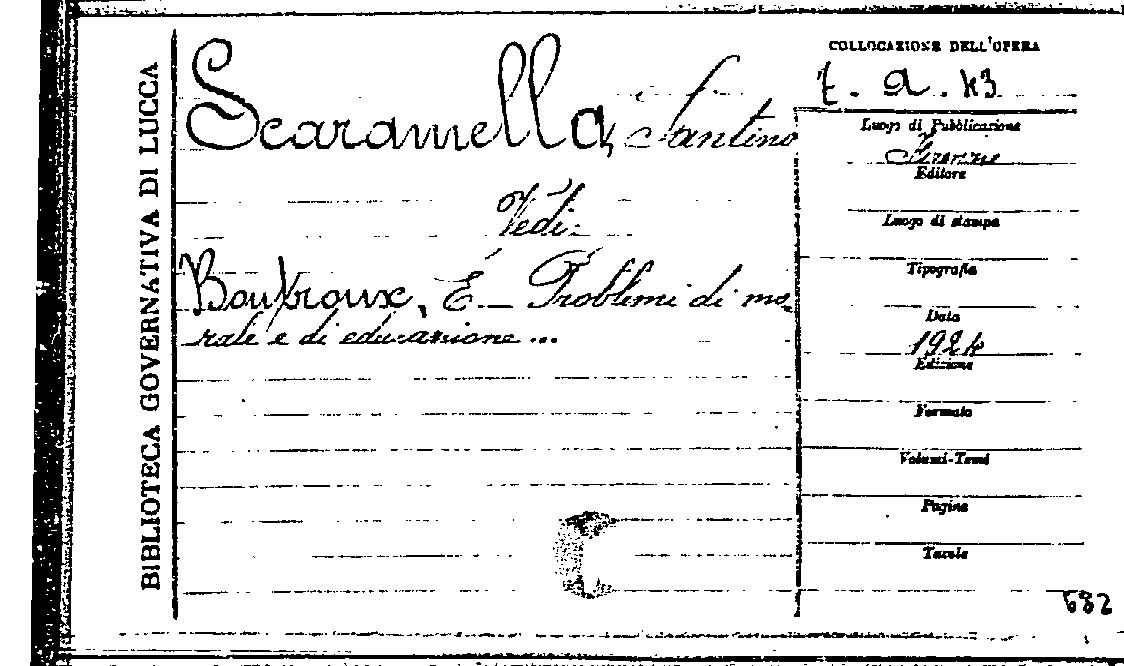 BIBLIOTECA GOVERNATIVA DI LUCCA
Scaramella, Santino
Vedi:
Boutroux, É. _ Problemi di mo_
rale e di educazione ...
COLLOCAZIONE DELL'OPERA
t. a. 43
Luogo di Pubblicazione
Firenze
Editore
Luogo di stampa
Tipografia
Data
1924
Edizione
Formato
Volumi-Tomi
Pagine
Tavole
682